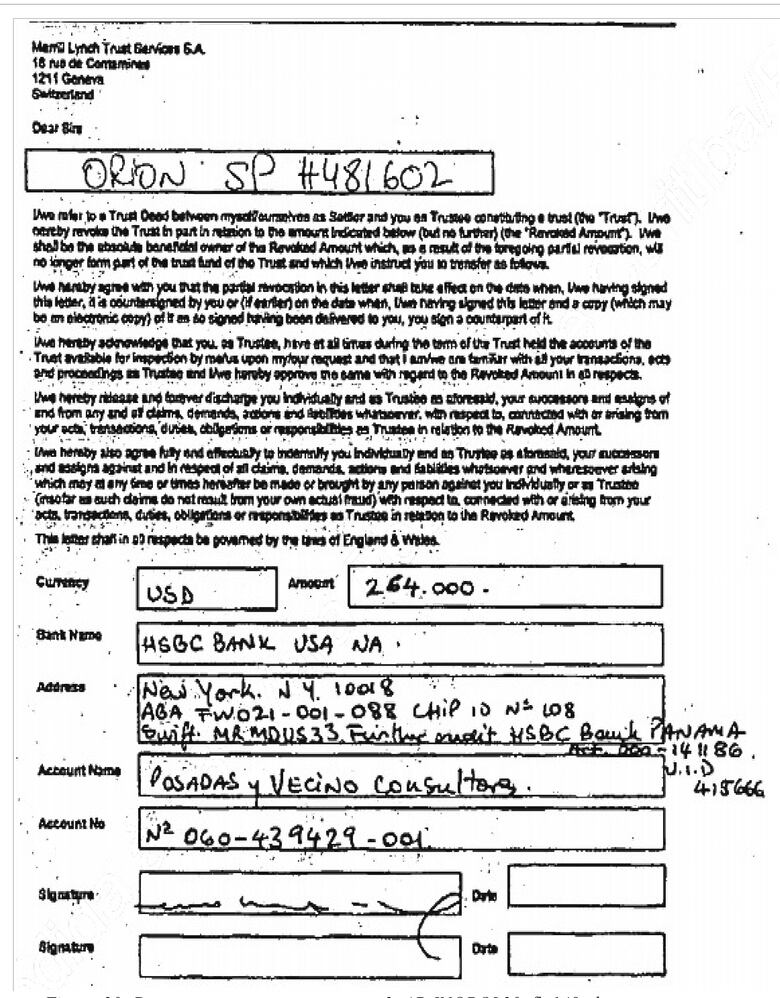 Merrill Lynch Trust Services S.A.
18 rue de Contamines
1211 Geneva
Switzerland
Dear Sirs
ORION SP #481602
I/we refer to a Trust Deed between myself/ourselves as Settlor and you as Trustee constituting a trust (the "Trust"). I/we
hereby revoke the Trust in part in relation to the amount indicated below (but no further) (the "Revoked Amount"). I/we
shall be the absolute beneficial owner of the Revoked Amount which, as a result of the foregoing partial revocation, will
no longer form part of the trust fund of the Trust and which I/we instruct you to transfer as follows.
I/we hereby agree with you that the partial revocation in this letter shall take effect on the date when, I/we having signed
this letter, it is countersigned by you or (if earlier) on the date when, I/we having signed this letter and a copy (which may
be an electronic copy) of it as so signed having been delivered to you, you sign a counterpart of it.
I/we hereby acknowledge that you, as Trustee, have at all times during the term of the Trust held the accounts of the
Trust available for inspection by me/us upon my/our request and that I am/we are familiar with all your transactions, acts
and proceedings as Trustee and I/we hereby approve the same with regard to the Revoked Amount in all respects.
I/we hereby release and forever discharge you individually and as Trustee as aforesaid, your successors and assigns of
and from any and all claims, demands, actions and liabilities whatsoever, with respect to, connected with or arising from
your acts, transactions, duties, obligations or responsibilities as Trustee in relation to the Revoked Amount.
I/we hereby also agree fully and effectually to indemnify you individually and as Trustee as aforesaid, your successors
and assigns against and in respect of all claims, demands, actions and liabilities whatsoever and wheresoever arising
which may at any time or times hereafter be made or brought by any person against you individually or as Trustee
(insofar as such claims do not result from your own actual fraud) with respect to, connected with or arising from your
acts, transactions, duties, obligations or responsibilities as Trustee in relation to the Revoked Amount.
This letter shall in all respects be governed by the laws of England & Wales.
Currency USD Amount 264.000.-
Bank Name HSBC BANK USA NA.
Address New York. N Y. 10018
ABA FW021-001-088 CHIP ID Nº 108
Swift. MRMDUS33. Further credit HSBC Bank PANAMA
Act. 000-141186.
U.I.D
415666
Account Name POSADAS y VECINO Consultores.
Account No Nº 060-439429-001.
Signature Date
Signature Date